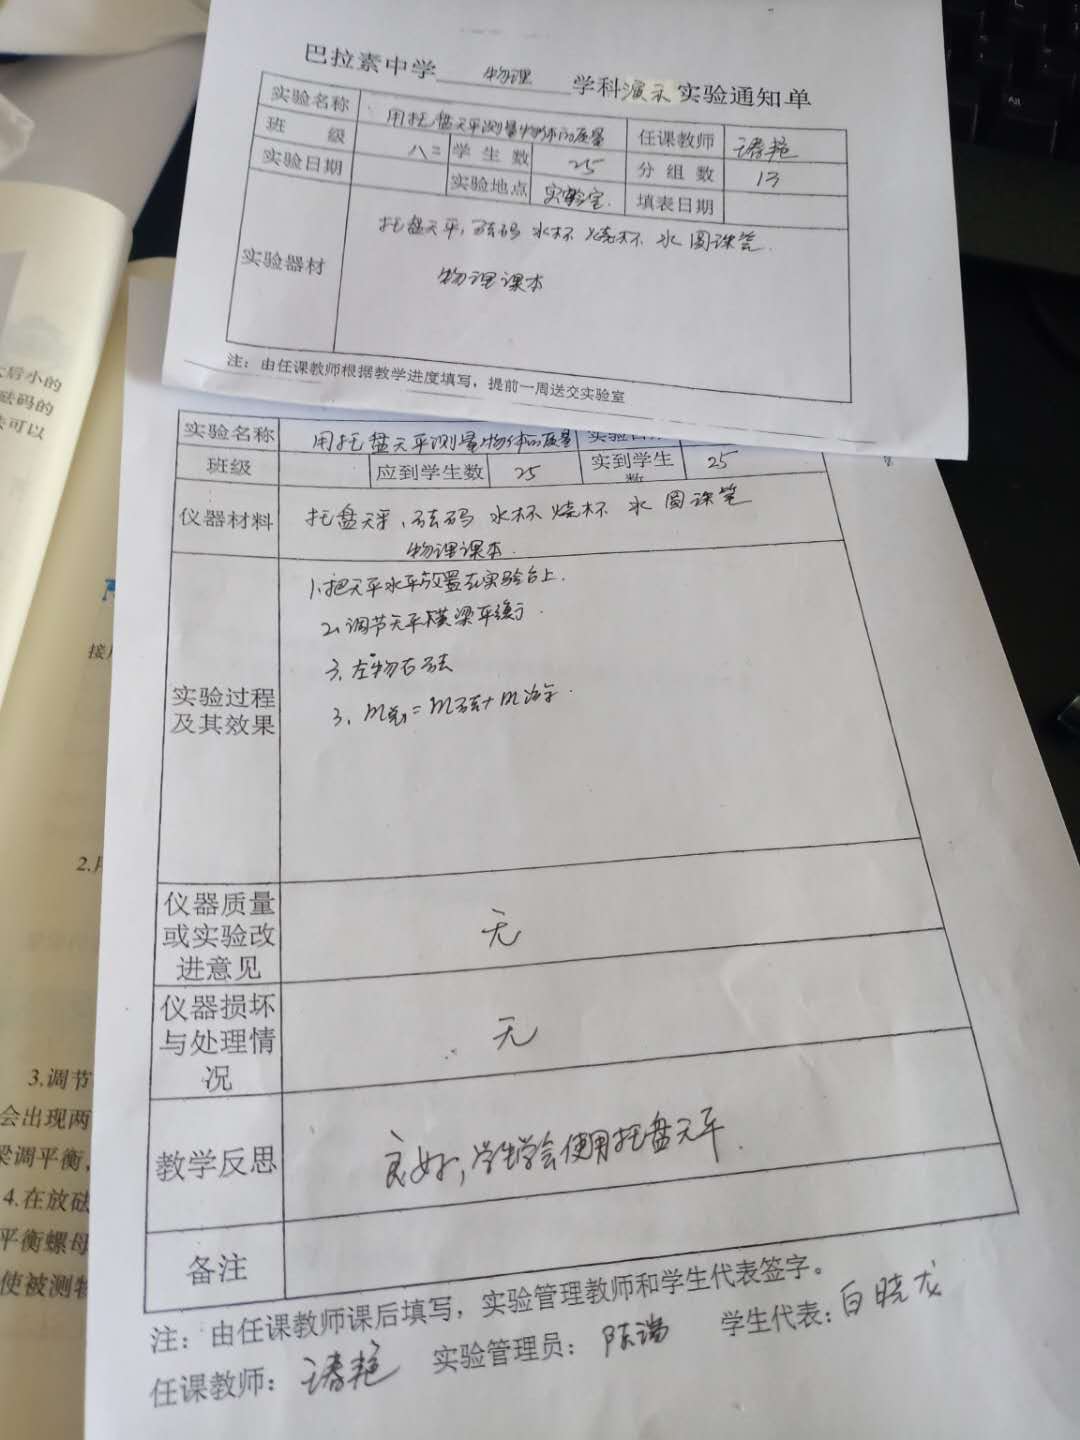 巴拉素中学 物理 学科演示实验通知单
实验名称 用托盘天平测量物体的质量 任课教师
班 级 八二 学生数 25 分组数 13
实验日期 实验地点 实验室 填表日期
实验器材 托盘天平, 砝码 水杯 烧杯 水 圆珠笔
物理课本
注：由任课教师根据教学进度填写，提前一周送交实验室
实验名称 用托盘天平测量物体的质量
班级 应到学生数 25 实到学生数 25
仪器材料 托盘天平、砝码 水杯 烧杯 水 圆珠笔
物理课本.
实验过程及其效果
1.把天平水平放置在实验台上.
2.调节天平横梁平衡.
3.左物右砝
3. m物=m砝+m游.
仪器质量或实验改进意见 无
仪器损坏与处理情况 无
教学反思 良好,学生学会使用托盘天平.
备注
注：由任课教师课后填写，实验管理教师和学生代表签字。
任课教师： 实验管理员：陈瑞 学生代表：白晓龙
大后小的
砝码的
可以
接
2.用
3.调节
会出现两
梁调平衡，
4.在放砝
平衡螺母
使被测物